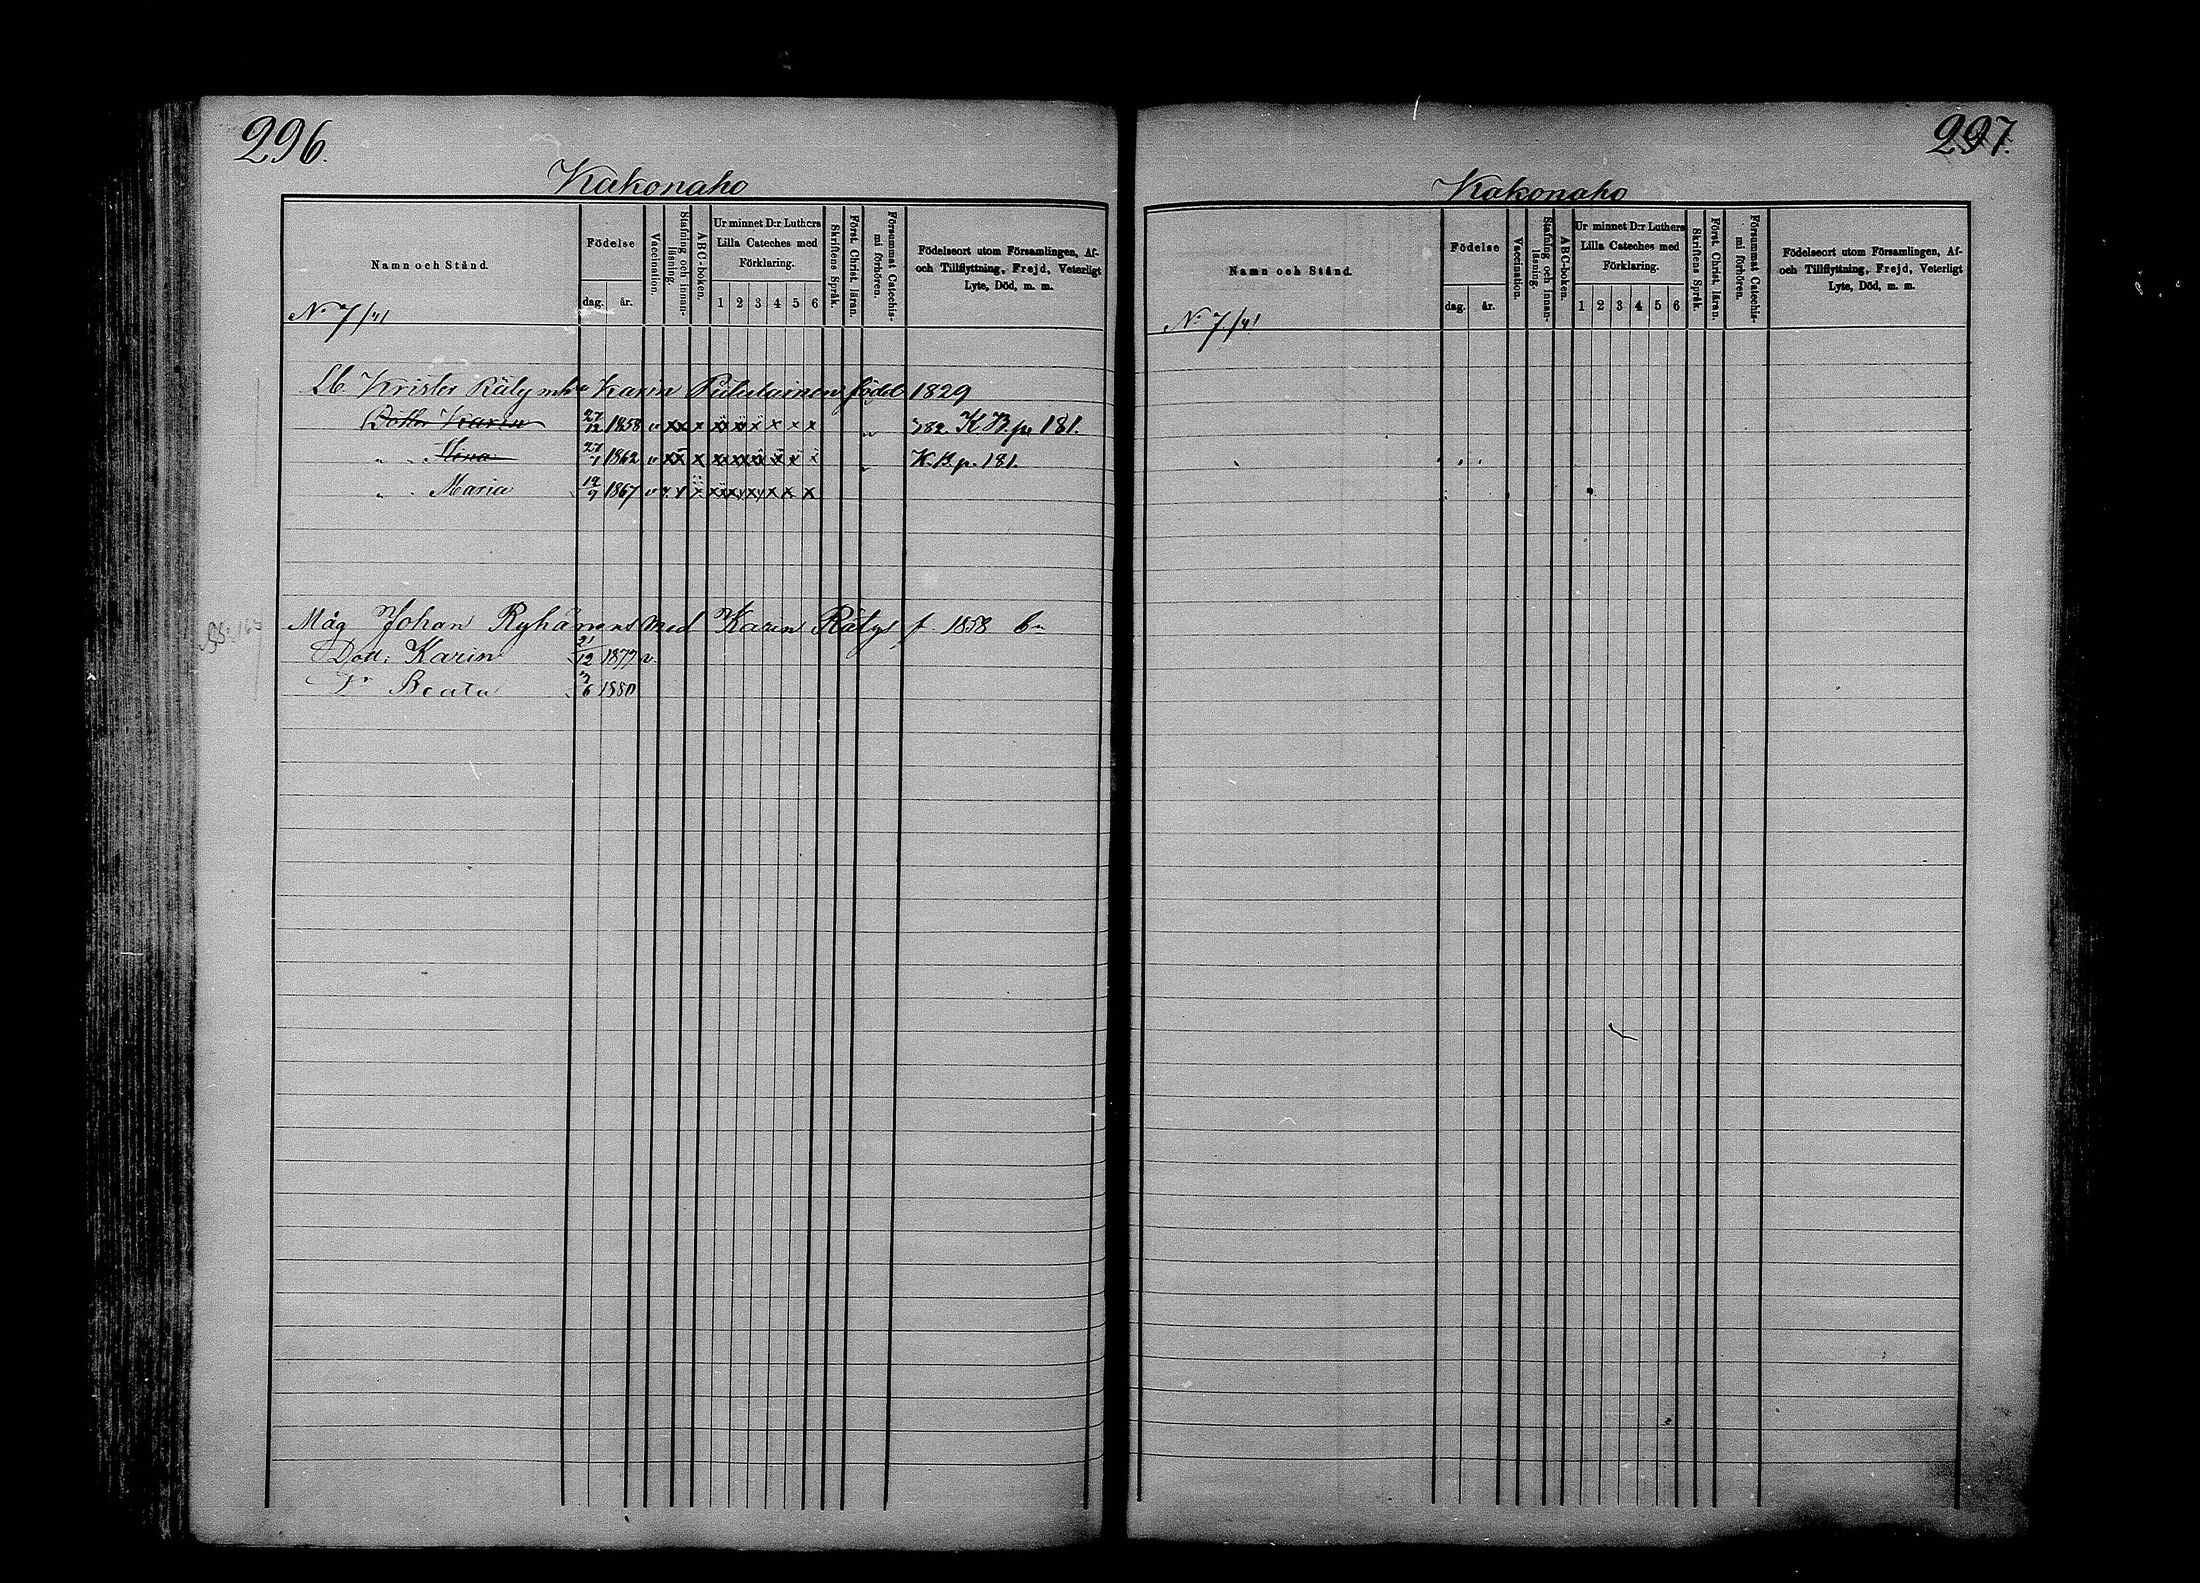 296.
Kakonaho
Namn och Stånd.
Födelse
dag.
år.
Vaccination.
Stafning och innan-
läsning.
ABC-boken.
Ur minnet D:r Luthers
Lilla Cateches med
Förklaring.
1 2 3 4 5 6
Skriftens Språk.
Först. Christ. läran.
Försummat Catechis-
mi förhören.
Födelseort utom Församlingen, Af-
och Tillflyttning, Frejd, Veterligt
Lyte, Död, m. m.
N:o 7/41
Lb. Krister Räty Karin född 1829
Dotter Karin 27/12 1858 v xx x x x x x x x K.B.p. 181.
" " 27/1 1862 v x x x x x x x x x K.B.p. 181.
" " Maria 12/9 1867 v x x x x x x x x x
Måg Johan Ryhänen med Karin Rätys f. 1858
Dott: Karin 21/12 1877 v.
D:r Beata 7/6 1880
297.
Kakonaho
Namn och Stånd.
Födelse
dag.
år.
Vaccination.
Stafning och innan-
läsning.
ABC-boken.
Ur minnet D:r Luthers
Lilla Cateches med
Förklaring.
1 2 3 4 5 6
Skriftens Språk.
Först. Christ. läran.
Försummat Catechis-
mi förhören.
Födelseort utom Församlingen, Af-
och Tillflyttning, Frejd, Veterligt
Lyte, Död, m. m.
N:o 7/41